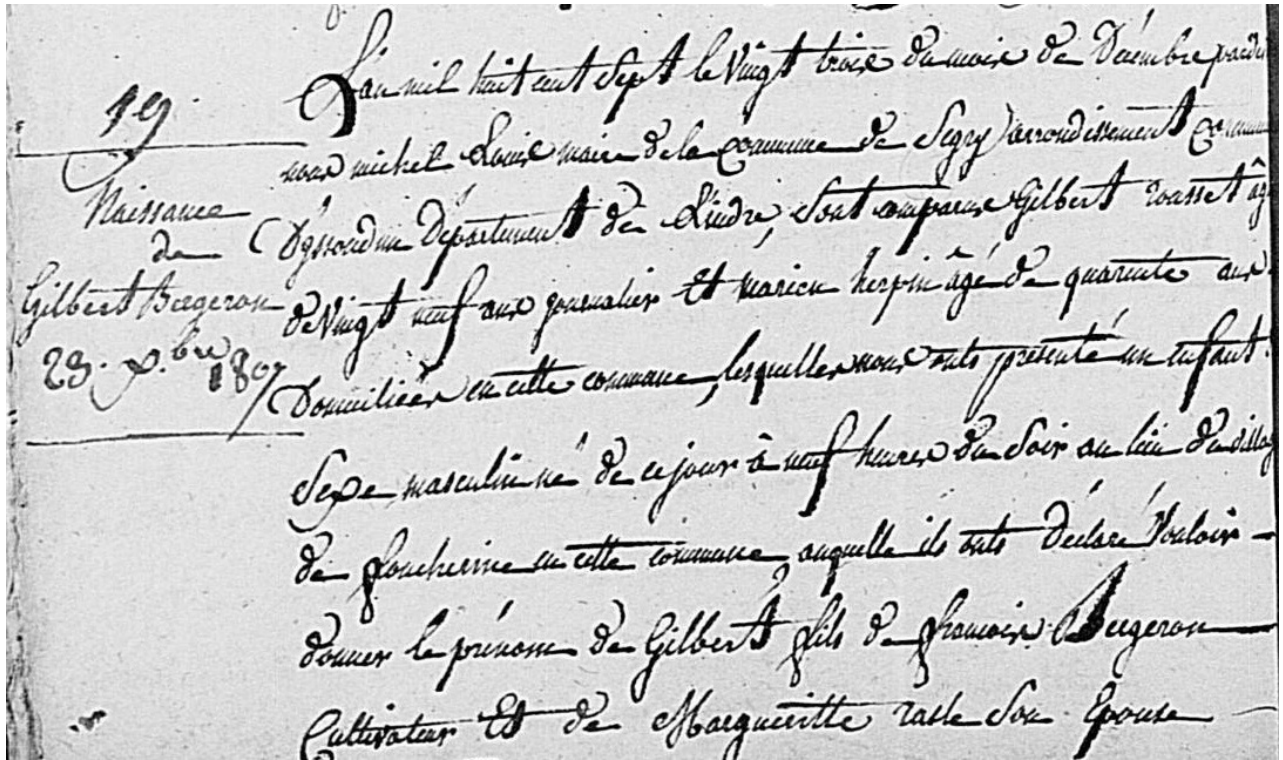 19
Naissance
de
Gilbert Bergeron
23. X.bre 1807
L'an mil huit cent Sept le Vingt trois du mois de Décembre pardevant
nous michel Louis maire de la commune de Segry arrondissement Communal
D'yssoudun Département de L'indre, Sont comparus Gilbert rousset âgé
de Vingt neuf ans journalier Et marien herpin âgé de quarante ans
Domiciliés en cette commune, lesquelles nous onts présenté un enfant
Sexe masculin né de ce jour à neuf heures du Soir au lieu du village
de en cette commune, auquelle ils onts Déclaré Vouloir
donner le prénom de Gilbert fils de francois Bergeron
Cultivateur Et de Margueritte rasle Son Epouse